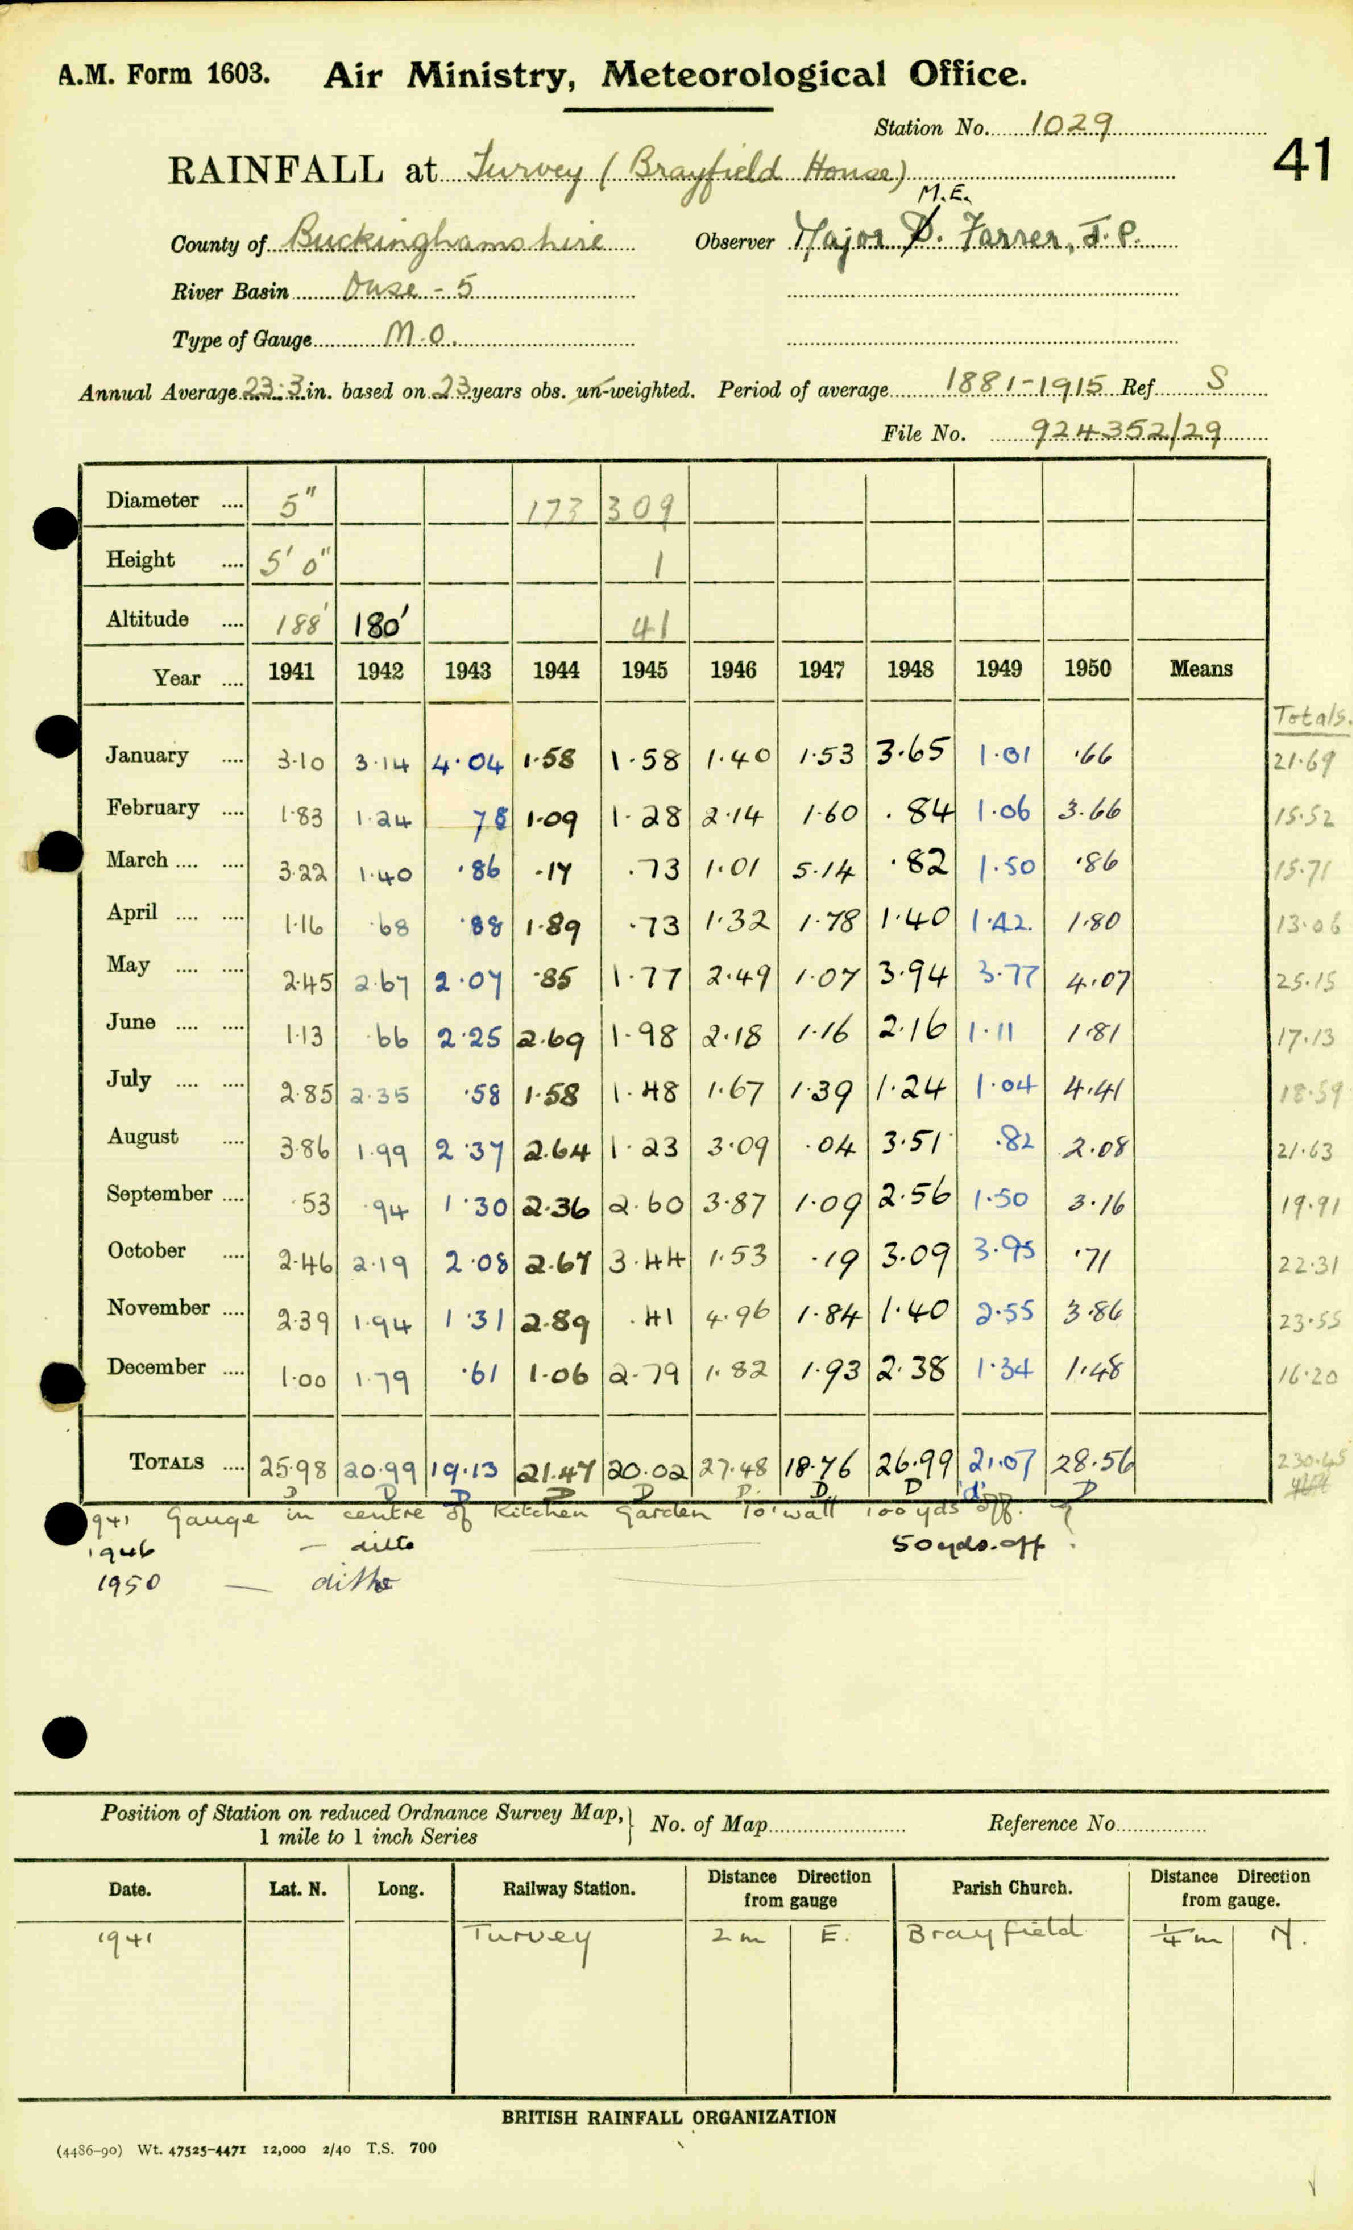 A.M. Form 1603. Air Ministry, Meteorological Office.
Station No. 1029
41
RAINFALL at Turvey (Brayfield House)
M.E.
County of Buckinghamshire Observer Major D. Farrer, J.P.
River Basin Ouse - 5
Type of Gauge M.O.
Annual Average 23.3 in. based on 23 years obs. un-weighted. Period of average 1881-1915 Ref S
File No. 924352/29
Diameter .... 5" 173 309
Height .... 5' 0" 1
Altitude .... 188' 180' 41
Year .... 1941 1942 1943 1944 1945 1946 1947 1948 1949 1950 Means
Totals.
January .... 3.10 3.14 4.04 1.58 1.58 1.40 1.53 3.65 1.01 .66 21.69
February .... 1.83 1.24 78 1.09 1.28 2.14 1.60 .84 1.06 3.66 15.52
March .... .... 3.22 1.40 .86 .17 .73 1.01 5.14 .82 1.50 .86 15.71
April .... .... 1.16 .68 .88 1.89 .73 1.32 1.78 1.40 1.42 1.80 13.06
May .... .... 2.45 2.67 2.07 .85 1.77 2.49 1.07 3.94 3.77 4.07 25.15
June .... .... 1.13 .66 2.25 2.69 1.98 2.18 1.16 2.16 1.11 1.81 17.13
July .... .... 2.85 2.35 .58 1.58 1.48 1.67 1.39 1.24 1.04 4.41 18.59
August .... 3.86 1.99 2.37 2.64 1.23 3.09 .04 3.51 .82 2.08 21.63
September .... .53 .94 1.30 2.36 2.60 3.87 1.09 2.56 1.50 3.16 19.91
October .... 2.46 2.19 2.08 2.67 3.44 1.53 .19 3.09 3.95 .71 22.31
November .... 2.39 1.94 1.31 2.89 .41 4.96 1.84 1.40 2.55 3.86 23.55
December .... 1.00 1.79 .61 1.06 2.79 1.82 1.93 2.38 1.34 1.48 16.20
TOTALS .... 25.98 20.99 19.13 21.47 20.02 27.48 18.76 26.99 21.07 28.56 230.45
D D D D D D. D D 'd' D
1941 Gauge in centre of Kitchen Garden 10' wall 100 yds off. ?
1946 — ditto 50 yds. off.
1950 — ditto
Position of Station on reduced Ordnance Survey Map, 1 mile to 1 inch Series } No. of Map Reference No
Date. Lat. N. Long. Railway Station. Distance Direction from gauge Parish Church. Distance Direction from gauge.
1941 Turvey 2 m E. Brayfield 1/4 m N.
BRITISH RAINFALL ORGANIZATION
(4486-90) Wt. 47525-4471 12,000 2/40 T.S. 700